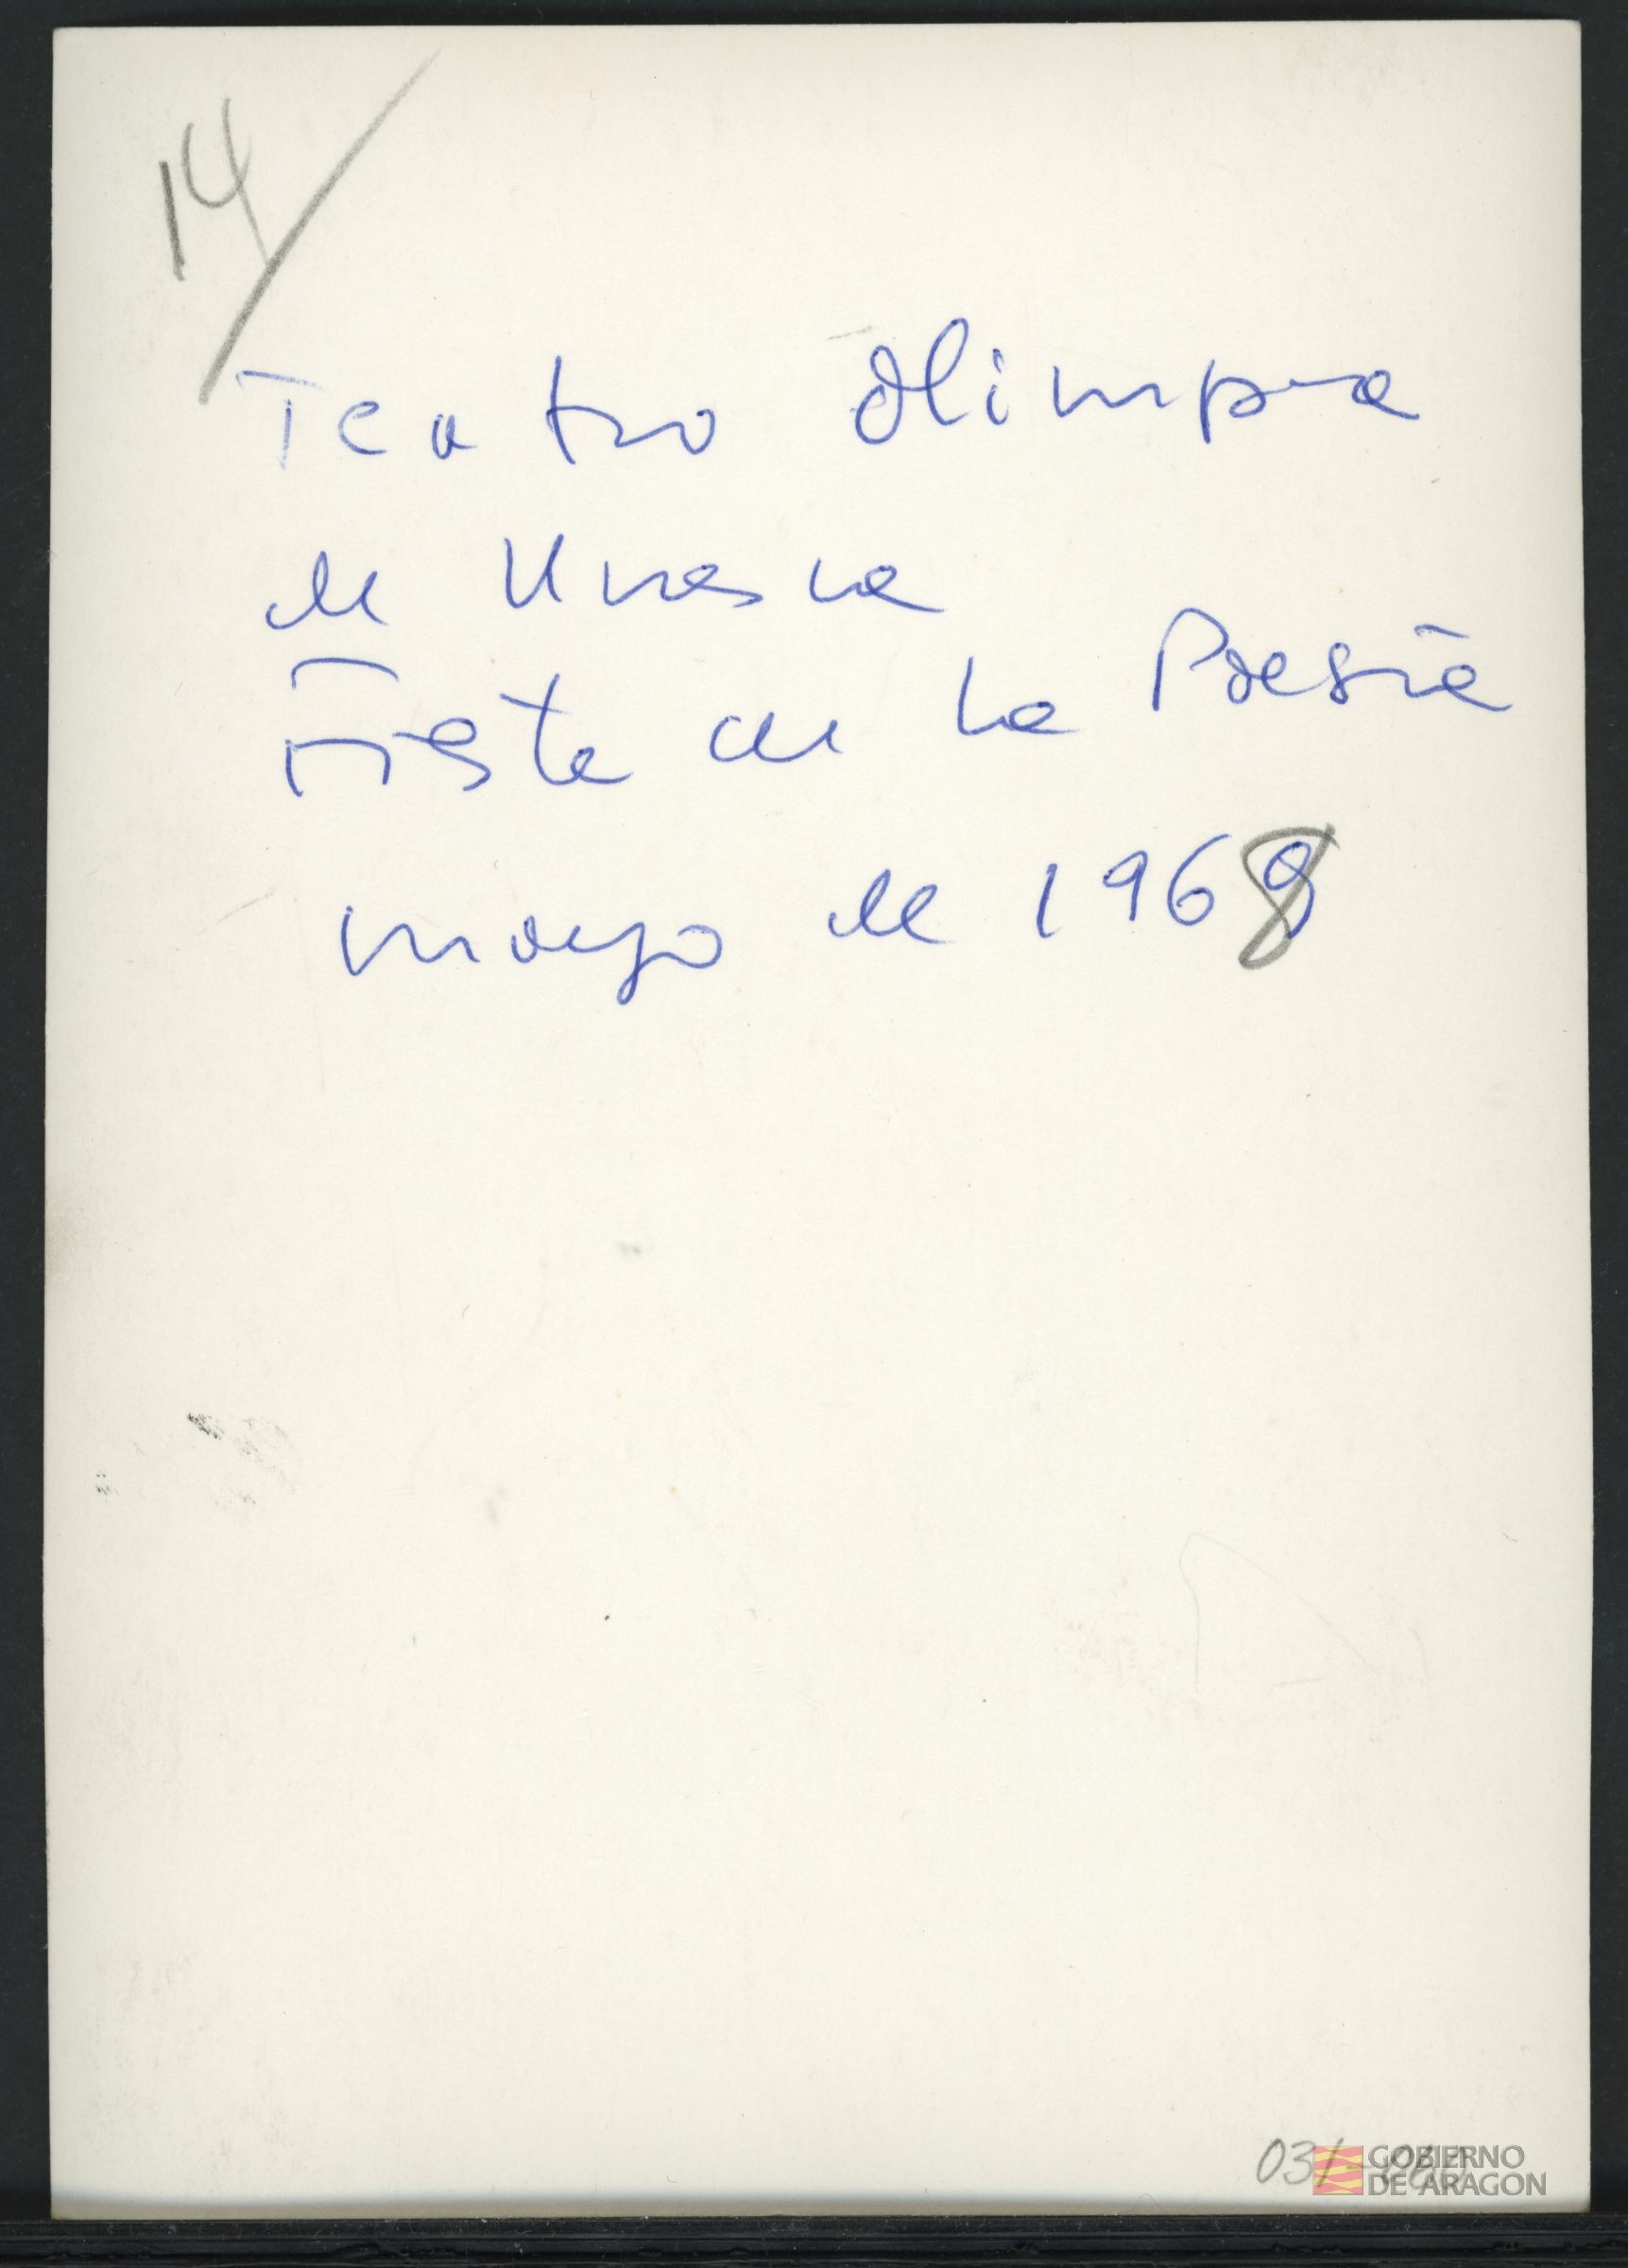 14
Teatro Olimpia
de Huesca
Fiesta de la Poesía
mayo de 1968
GOBIERNO
DE ARAGON